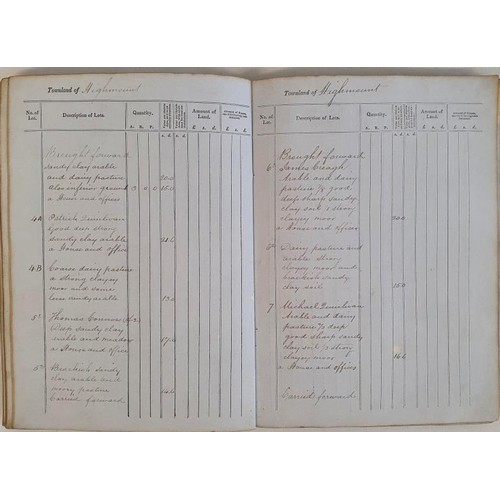 Townland of Highmount
No. of Lot.
Description of Lots.
Quantity.
Amount of Land.
A. R. P.
s. d.
s. d.
£ s. d.
£ s. d.
Brought forward
sandy clay arable
and dairy pasture 20.0
Also inferior ground 3 0 0 15.0
a House and offices
4A Patrick Quinlivan
Good deep strong
sandy clay arable 21.6
a House and offices
4B Coarse dairy pasture
a strong clayey
moor and some
less sandy arable 13.0
5 Thomas Connors
Deep sandy clay
arable and meadow 17.6
a House and offices
5 Brackish sandy
clay arable and
pasture 14.6
Carried forward
Townland of Highmount
No. of Lot.
Description of Lots.
Quantity.
Amount of Land.
A. R. P.
s. d.
s. d.
£ s. d.
£ s. d.
Brought forward
6 James Creagh
Arable and dairy
pasture good
deep sharp sandy
clay soil & strong
clayey moor 20.0
a House and offices
6 Dairy pasture and
arable strong
clayey moor and
brackish sandy
clay soil 15.0
7 Michael Quinlivan
Arable and dairy
pasture deep
good sharp sandy
clay soil & strong
clayey moor 16.6
a House and offices
Carried forward